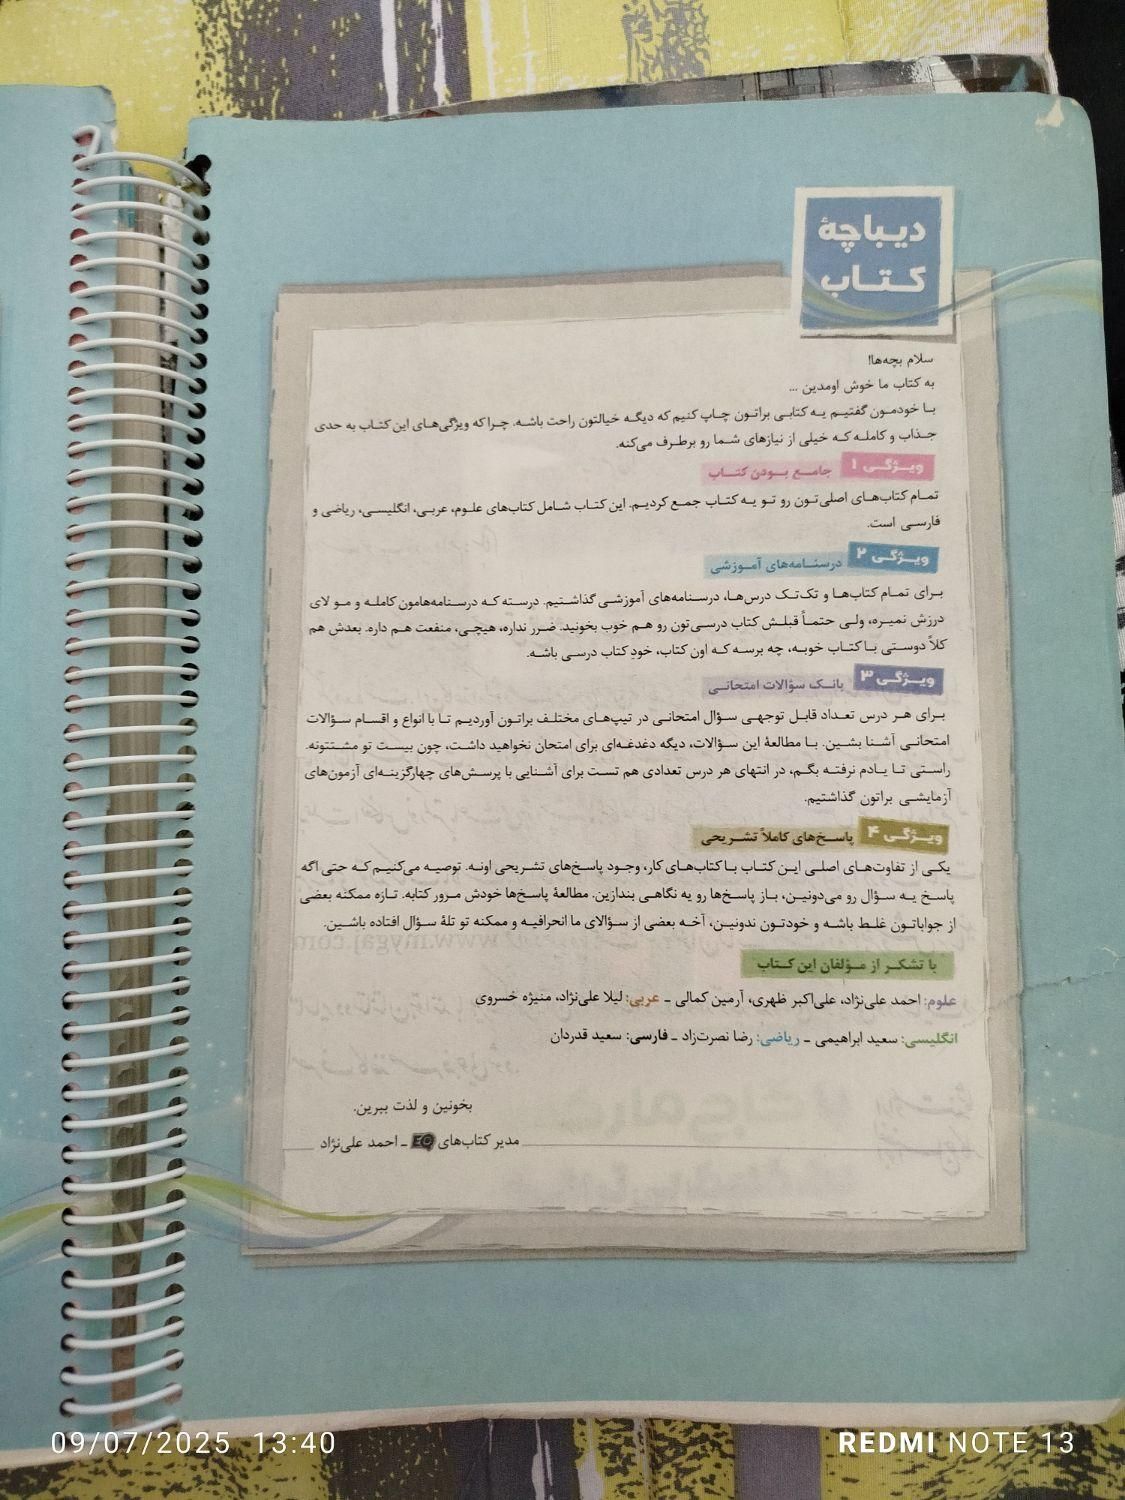 دیباچهٔ
کتاب
سلام بچه‌ها!
به کتاب ما خوش اومدین ...
با خودمون گفتیم یه کتابی براتون چاپ کنیم که دیگه خیالتون راحت باشه. چراکه ویژگی‌های این کتاب به حدی
جذاب و کامله که خیلی از نیازهای شما رو برطرف می‌کنه.
ویژگی ۱ جامع بودن کتاب
تمام کتاب‌های اصلی‌تون رو تو یه کتاب جمع کردیم. این کتاب شامل کتاب‌های علوم، عربی، انگلیسی، ریاضی و
فارسی است.
ویژگی ۲ درسنامه‌های آموزشی
برای تمام کتاب‌ها و تک‌تک درس‌ها، درسنامه‌های آموزشی گذاشتیم. درسته که درسنامه‌هامون کامله و مو لای
درزش نمیره، ولی حتماً قبلش کتاب درسی‌تون رو هم خوب بخونید. ضرر نداره، هیچی، منفعت هم داره. بعدش هم
کلاً دوستی با کتاب خوبه، چه برسه که اون کتاب، خودِ کتاب درسی باشه.
ویژگی ۳ بانک سؤالات امتحانی
برای هر درس تعداد قابل توجهی سؤال امتحانی در تیپ‌های مختلف براتون آوردیم تا با انواع و اقسام سؤالات
امتحانی آشنا بشین. با مطالعهٔ این سؤالات، دیگه دغدغه‌ای برای امتحان نخواهید داشت، چون بیست تو مشتتونه.
راستی تا یادم نرفته بگم، در انتهای هر درس تعدادی هم تست برای آشنایی با پرسش‌های چهارگزینه‌ای آزمون‌های
آزمایشی براتون گذاشتیم.
ویژگی ۴ پاسخ‌های کاملاً تشریحی
یکی از تفاوت‌های اصلی این کتاب با کتاب‌های کار، وجود پاسخ‌های تشریحی اونه. توصیه می‌کنیم که حتی اگه
پاسخ یه سؤال رو می‌دونین، باز پاسخ‌ها رو یه نگاهی بندازین. مطالعهٔ پاسخ‌ها خودش مرور کتابه. تازه ممکنه بعضی
از جواباتون غلط باشه و خودتون ندونین، آخه بعضی از سؤالای ما انحرافیه و ممکنه تو تلهٔ سؤال افتاده باشین.
با تشکر از مؤلفان این کتاب
علوم: احمد علی‌نژاد، علی‌اکبر ظهری، آرمین کمالی ـ عربی: لیلا علی‌نژاد، منیژه خسروی
انگلیسی: سعید ابراهیمی ـ ریاضی: رضا نصرت‌زاد ـ فارسی: سعید قدردان
بخونین و لذت ببرین.
مدیر کتاب‌های EQ ـ احمد علی‌نژاد
09/07/2025 13:40
REDMI NOTE 13